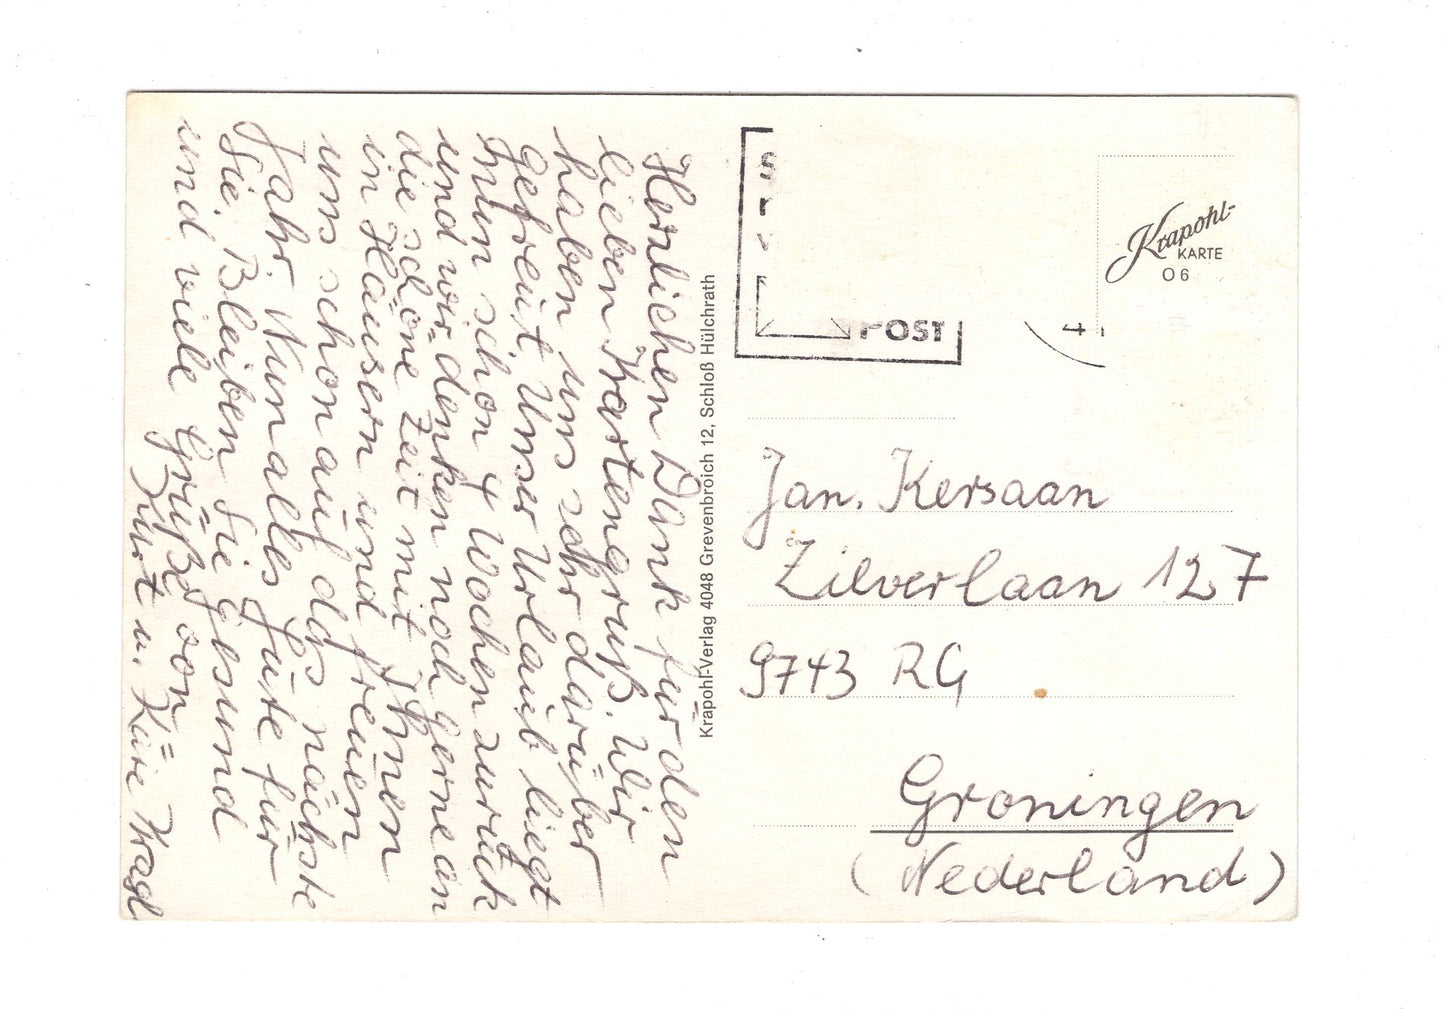 Herzlichen Dank für den
lieben Kartengruß. Wir
haben uns sehr darüber
gefreut. Unser Urlaub liegt
nun schon 4 Wochen zurück
und wir denken noch gerne an
die schöne Zeit mit Ihnen
in Häusern und freuen
uns schon auf das nächste
Jahr. Nun alles Gute für
Sie. Bleiben Sie gesund
und viele Grüße von
Kurt u. Käte Kragl
Krapohl-Verlag 4048 Grevenbroich 12, Schloß Hülchrath
POST
4
Krapohl-
KARTE
O 6
Jan. Kersaan
Zilverlaan 127
9743 RG
Groningen
(Nederland)